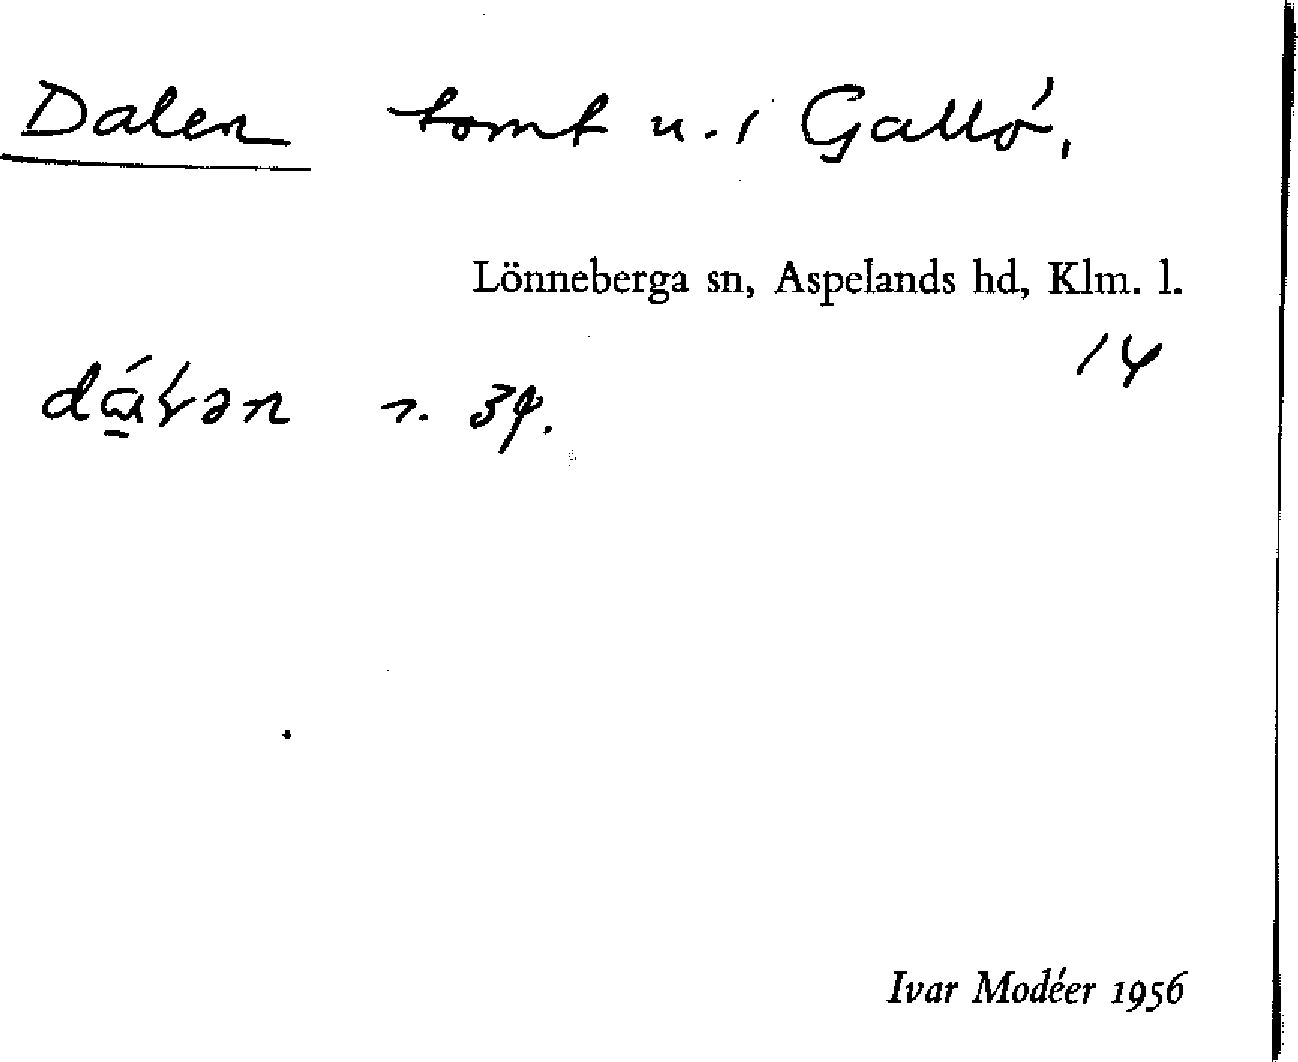 Dalen tomt u. i Galló,
Lönneberga sn, Aspelands hd, Klm. l.
14
r. 39.
Ivar Modéer 1956